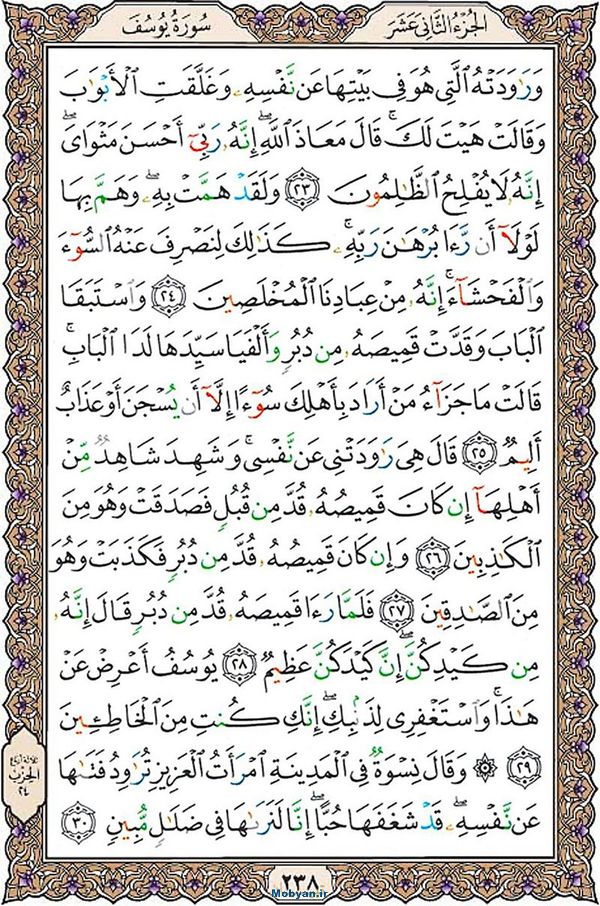 سُورَةُ يُوسُفَ
الجُزءُ الثَّانِي عَشَرَ
وَرَٰوَدَتۡهُ ٱلَّتِي هُوَ فِي بَيۡتِهَا عَن نَّفۡسِهِۦ وَغَلَّقَتِ ٱلۡأَبۡوَٰبَ
وَقَالَتۡ هَيۡتَ لَكَۚ قَالَ مَعَاذَ ٱللَّهِۖ إِنَّهُۥ رَبِّيٓ أَحۡسَنَ مَثۡوَايَۖ
إِنَّهُۥ لَا يُفۡلِحُ ٱلظَّٰلِمُونَ ٢٣ وَلَقَدۡ هَمَّتۡ بِهِۦۖ وَهَمَّ بِهَا
لَوۡلَآ أَن رَّءَا بُرۡهَٰنَ رَبِّهِۦۚ كَذَٰلِكَ لِنَصۡرِفَ عَنۡهُ ٱلسُّوٓءَ
وَٱلۡفَحۡشَآءَۚ إِنَّهُۥ مِنۡ عِبَادِنَا ٱلۡمُخۡلَصِينَ ٢٤ وَٱسۡتَبَقَا
ٱلۡبَابَ وَقَدَّتۡ قَمِيصَهُۥ مِن دُبُرٖ وَأَلۡفَيَا سَيِّدَهَا لَدَا ٱلۡبَابِۚ
قَالَتۡ مَا جَزَآءُ مَنۡ أَرَادَ بِأَهۡلِكَ سُوٓءًا إِلَّآ أَن يُسۡجَنَ أَوۡ عَذَابٌ
أَلِيمٞ ٢٥ قَالَ هِيَ رَٰوَدَتۡنِي عَن نَّفۡسِيۚ وَشَهِدَ شَاهِدٞ مِّنۡ
أَهۡلِهَآ إِن كَانَ قَمِيصُهُۥ قُدَّ مِن قُبُلٖ فَصَدَقَتۡ وَهُوَ مِنَ
ٱلۡكَٰذِبِينَ ٢٦ وَإِن كَانَ قَمِيصُهُۥ قُدَّ مِن دُبُرٖ فَكَذَبَتۡ وَهُوَ
مِنَ ٱلصَّٰدِقِينَ ٢٧ فَلَمَّا رَءَا قَمِيصَهُۥ قُدَّ مِن دُبُرٖ قَالَ إِنَّهُۥ
مِن كَيۡدِكُنَّۖ إِنَّ كَيۡدَكُنَّ عَظِيمٞ ٢٨ يُوسُفُ أَعۡرِضۡ عَنۡ
هَٰذَاۚ وَٱسۡتَغۡفِرِي لِذَنۢبِكِۖ إِنَّكِ كُنتِ مِنَ ٱلۡخَاطِـِٔينَ
٢٩ ۞ وَقَالَ نِسۡوَةٞ فِي ٱلۡمَدِينَةِ ٱمۡرَأَتُ ٱلۡعَزِيزِ تُرَٰوِدُ فَتَىٰهَا
عَن نَّفۡسِهِۦۖ قَدۡ شَغَفَهَا حُبًّاۖ إِنَّا لَنَرَىٰهَا فِي ضَلَٰلٖ مُّبِينٖ ٣٠
ثلاثة أرباع
الحزب
٢٤
٢٣٨
Mobyan.ir